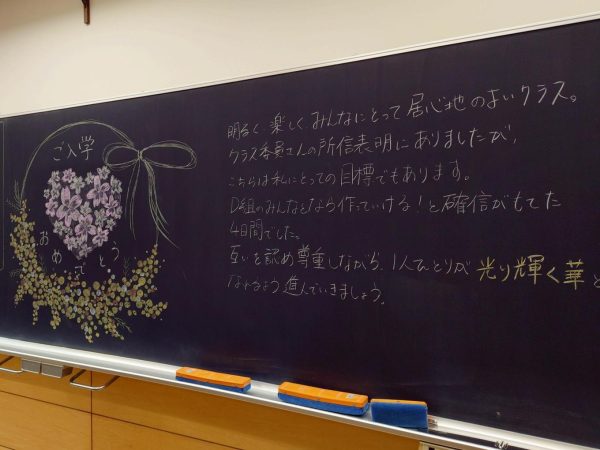 ご入学
おめでとう
明るく、楽しく、みんなにとって居心地のよいクラス。
クラス委員さんの所信表明にありましたが、
こちらは私にとっての目標でもあります。
D組のみんなとなら作っていける！と確信がもてた
4日間でした。
互いを認め尊重しながら、1人ひとりが光り輝く華と
なれるよう進んでいきましょう。